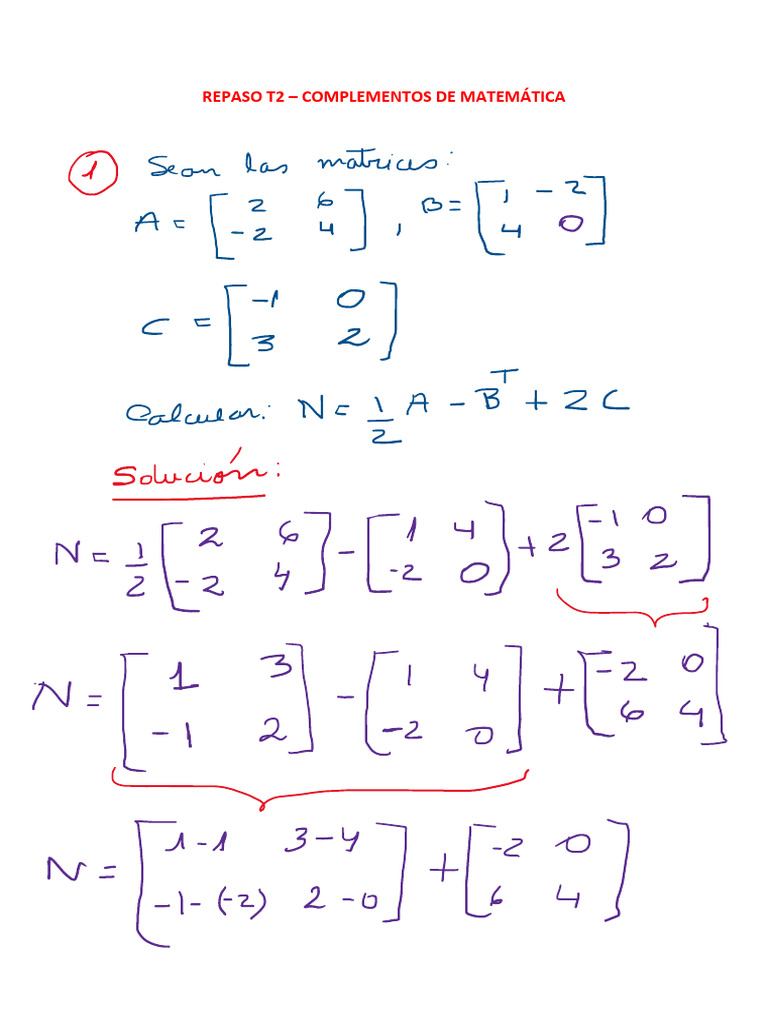 REPASO T2 – COMPLEMENTOS DE MATEMÁTICA
1 Sean las matrices:
A = [ 2 6 ] , B = [ 1 -2 ]
[ -2 4 ] [ 4 0 ]
C = [ -1 0 ]
[ 3 2 ]
Calcular: N = 1/2 A - B^T + 2C
Solución:
N = 1/2 [ 2 6 ] - [ 1 4 ] + 2 [ -1 0 ]
[ -2 4 ] [ -2 0 ] [ 3 2 ]
N = [ 1 3 ] - [ 1 4 ] + [ -2 0 ]
[ -1 2 ] [ -2 0 ] [ 6 4 ]
N = [ 1-1 3-4 ] + [ -2 0 ]
[ -1-(-2) 2-0 ] [ 6 4 ]